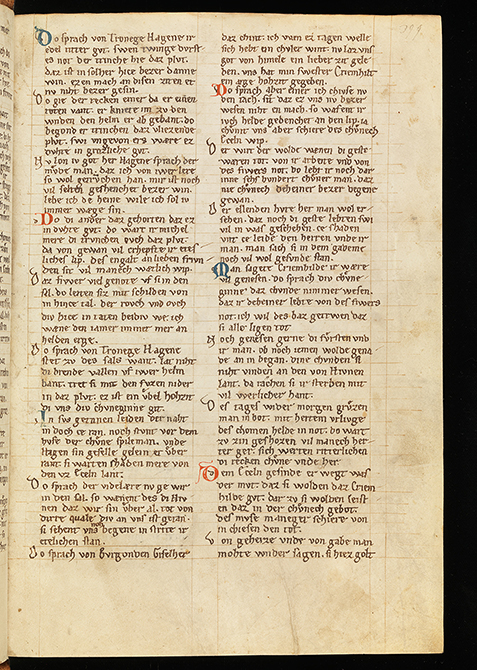 Do sprach von Tronege Hagene ir
edel ritter gvt. swen twinge durst
es not der trinche hie daz plvt.
daz ist in solher hice bezer danne
win. ezen mach an disen ziten et
nv niht bezer gesin.
Do gie der recken einer da er einen
toten vant. er kniete im zv der
wnden den helm er ab gebant. do
begond er trinchen daz vliezende
plvt. swi vngewon ers were ez
duhte in grozliche gvt.
Nv lon iv got her Hagene sprach der
mvde man. daz ich von iwer lere
so wol getrvnchen han. mir ist noch
vil selten geschenchet bezer win.
lebe ich deheine wile ich sol iv
immer wæge sin.
Do di ander daz gehorten daz ez
in dvhte gvt. do wart ir michel
mere di trvnchen ovch daz plvt.
da von gewan vil chrefte ir etes
liches lip. des engalt an lieben frivn
den sit vil manech wætlich wip.
Daz fiwer viel genote vf si in den
sal. do leiten siz mit schilden von
in hin ce tal. der rovch vnd ovch
div hice in taten beidiv we. ich
wæne den iamer immer mer an
helden erge.
Do sprach von Tronege Hagene
stet zv des sales want. lat niht
di brende vallen vf iwer helm
bant. tret si mit den fvzen nider
in daz plvt. ez ist ein vbel hohzit
di vns div chuneginne tvt.
In svs getanen leiden der naht
in doch ce ran. noch stvnt vor dem
huse der chune spileman. vnde
Hagen sin geselle gelein et vber
rant. si warten schaden mere von
den vz Eceln lant.
Do sprach der videlære nv ge wir
in den sal. so wænent des di Hiv
nen daz wir sin vber al. tot von
dirre quale div an vns ist getan.
si sehent vns begene in strite ir
etelichen stan.
Do sprach von Burgunden Giselher
daz chint. ich wæn ez tagen welle
sich hebt ein chvler wint. nv laz vns
got von himele ein lieber zit gele
ben. vns hat min swester Criemhilt
ein arge hohzit gegeben.
Do sprach aber einer ich chivse nv
den tach. sit daz ez vns nv bezer
wesen niht en mach. so wafent ir
uch helde gedenchet an den lip. ia
chumt vns aber schiere des chunech
Eceln wip.
Der wirt der wolde wænen di geste
wæren tot. von ir arbeite vnd von
des fiwers not. do lebt ir noch dar
inne sehs hundert chuner man. daz
nie chunech deheiner bezer degene
gewan.
Der ellenden hvte her man wol er-
sehen. daz noch di geste lebten swi
vil in was geschehen. ce schaden
vnt ce leide den herren vnde ir
man. man sach si in dem gademe
noch vil wol gesvnde stan.
Man sagete Criemhilde ir wære
vil genesen. do sprach div chune
ginne daz chunde nimmer wesen.
daz ir deheiner lebte von des fiwers
not. ich wil des baz getrwen daz
si alle ligen tot.
Noch genæsen gerne di fursten vnd
ir man. ob noch iemen wolde gena
de an in began. dine chunden si
niht vinden an den von Hivnen
lant. da rachen si ir sterben mit
vil williclicher hant.
Des tages wider morgen grvzen
man in bot. mit hertem vrlivge
des chomen helde in not. do wart
zv zin geschozen vil manech her
ter ger. sich werten ritterlichen
di recken chune vnde her.
Dem Eceln gesinde er wegt was
der mvt. daz si wolden daz Criem
hilde gvt. dar zv si wolden leist
en daz in der chunech gebot.
des mvse maneger schiere von
in chiesen den tot.
Von geheize vnde von gabe man
mohte wnder sagen. si hiez golt